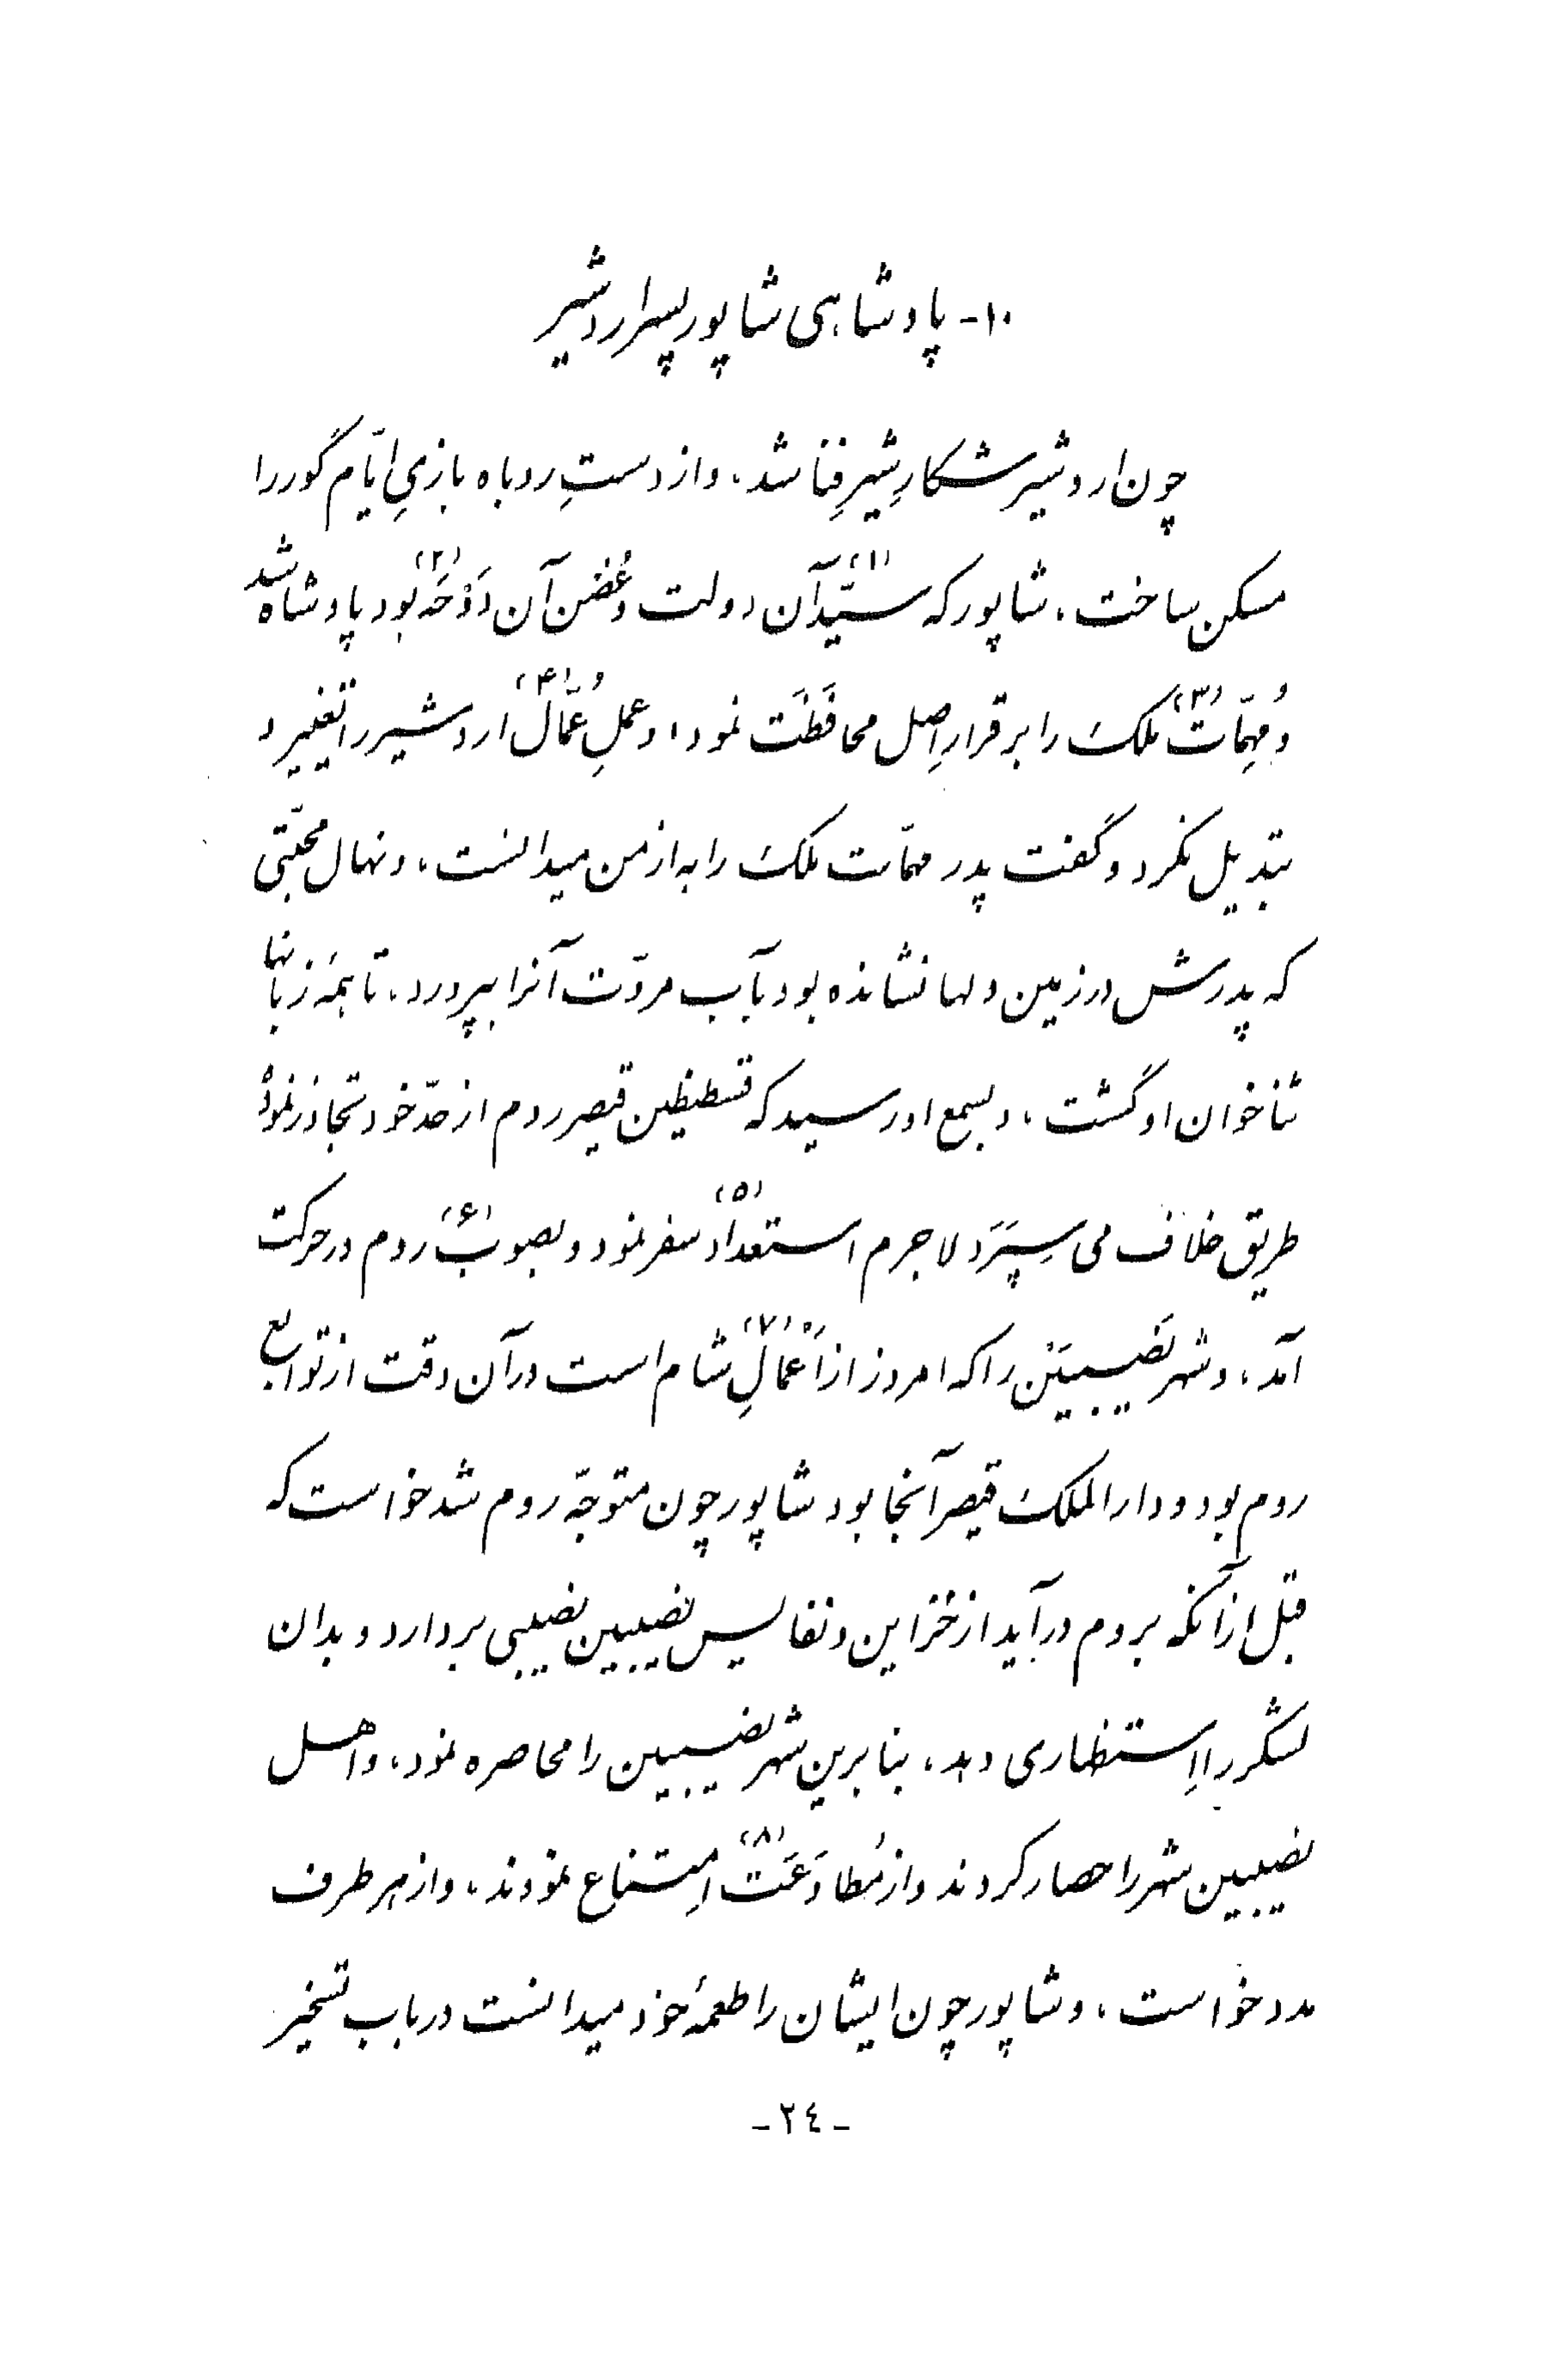 ۱۰- پادشاهی شاپور پسر اردشیر
چون اردشیر شکارِ شیرِ فنا شد، و از دستِ روباه بازیِ ایّام گور را
مسکن ساخت، شاپور که سیّد(۱) آن دولت و غُصن آن دَوْحَه(۲) بود پادشاه شد
و مُهِمّات(۳) ملک را بر قرارِ اصل محافَظَت نمود، و عملِ عُمّال(۴) اردشیر را تغییر و
تبدیل نکرد و گفت پدر مهمّات ملک را به از من میدانست، و نهال محبّتی
که پدرش در زمین دلها نشانده بود بآب مروّت آنرا بپرورد، تا همهٔ زبانها
ثناخوان او گشت، و بسمع او رسید که قسطیطین قیصر روم از حدّ خود تجاوز نموده
طریق خلاف می سِپَرَد لاجرم استعداد(۵) سفر نمود و بصوب(۶) روم در حرکت
آمد، و شهر نَصیبیَن را که امروز از اَعْمالِ(۷) شام است در آن وقت از توابع
روم بود و دارالملک قیصر آنجا بود شاپور چون متوجّه روم شد خواست که
قبل از آنکه بروم درآید از خزاین و نفایس نصیبین نصیبی بردارد و بدان
لشگر را اِستظهاری دهد، بنابرین شهر نصیبین را محاصره نمود، و اهل
نصیبین شهر را حصار کردند و از مُطاوَعَت(۸) اِمتناع نمودند، و از هر طرف
مدد خواست، و شاپور چون ایشان را طعمهٔ خود میدانست در باب تسخیر
-۲٤-